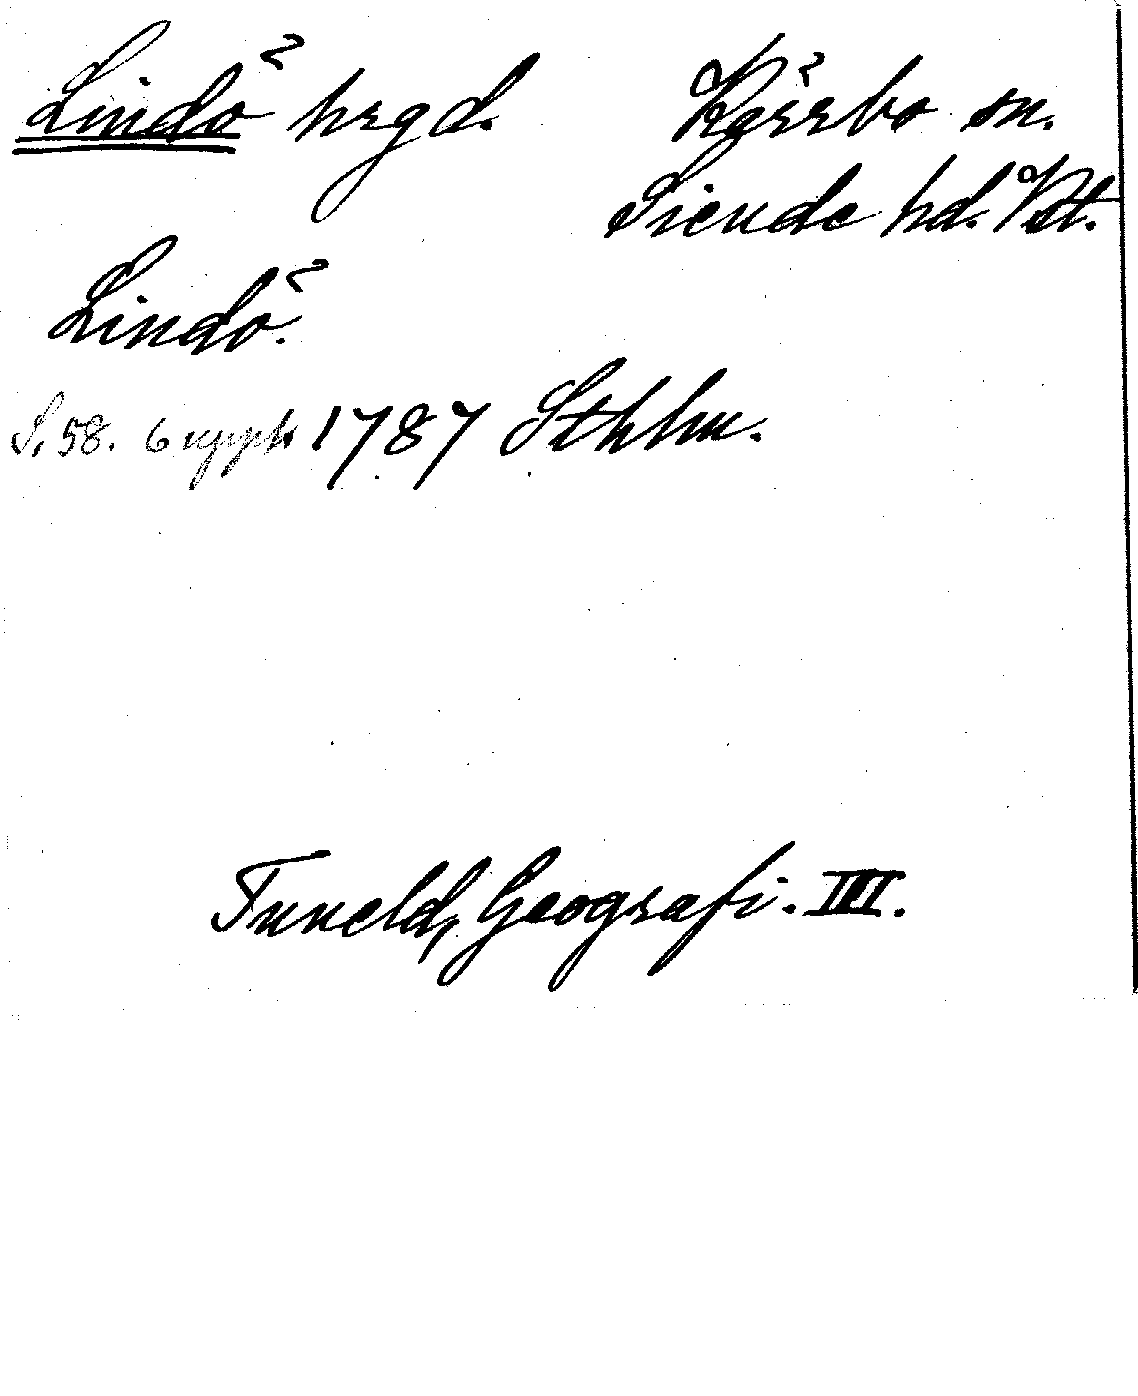 Lindö hrgd. Kärrbo sn.
Siende hd. Vstm.
Lindö.
S. 58. 6 uppl. 1787 Sthlm.
Tuneld, Geografi. III.